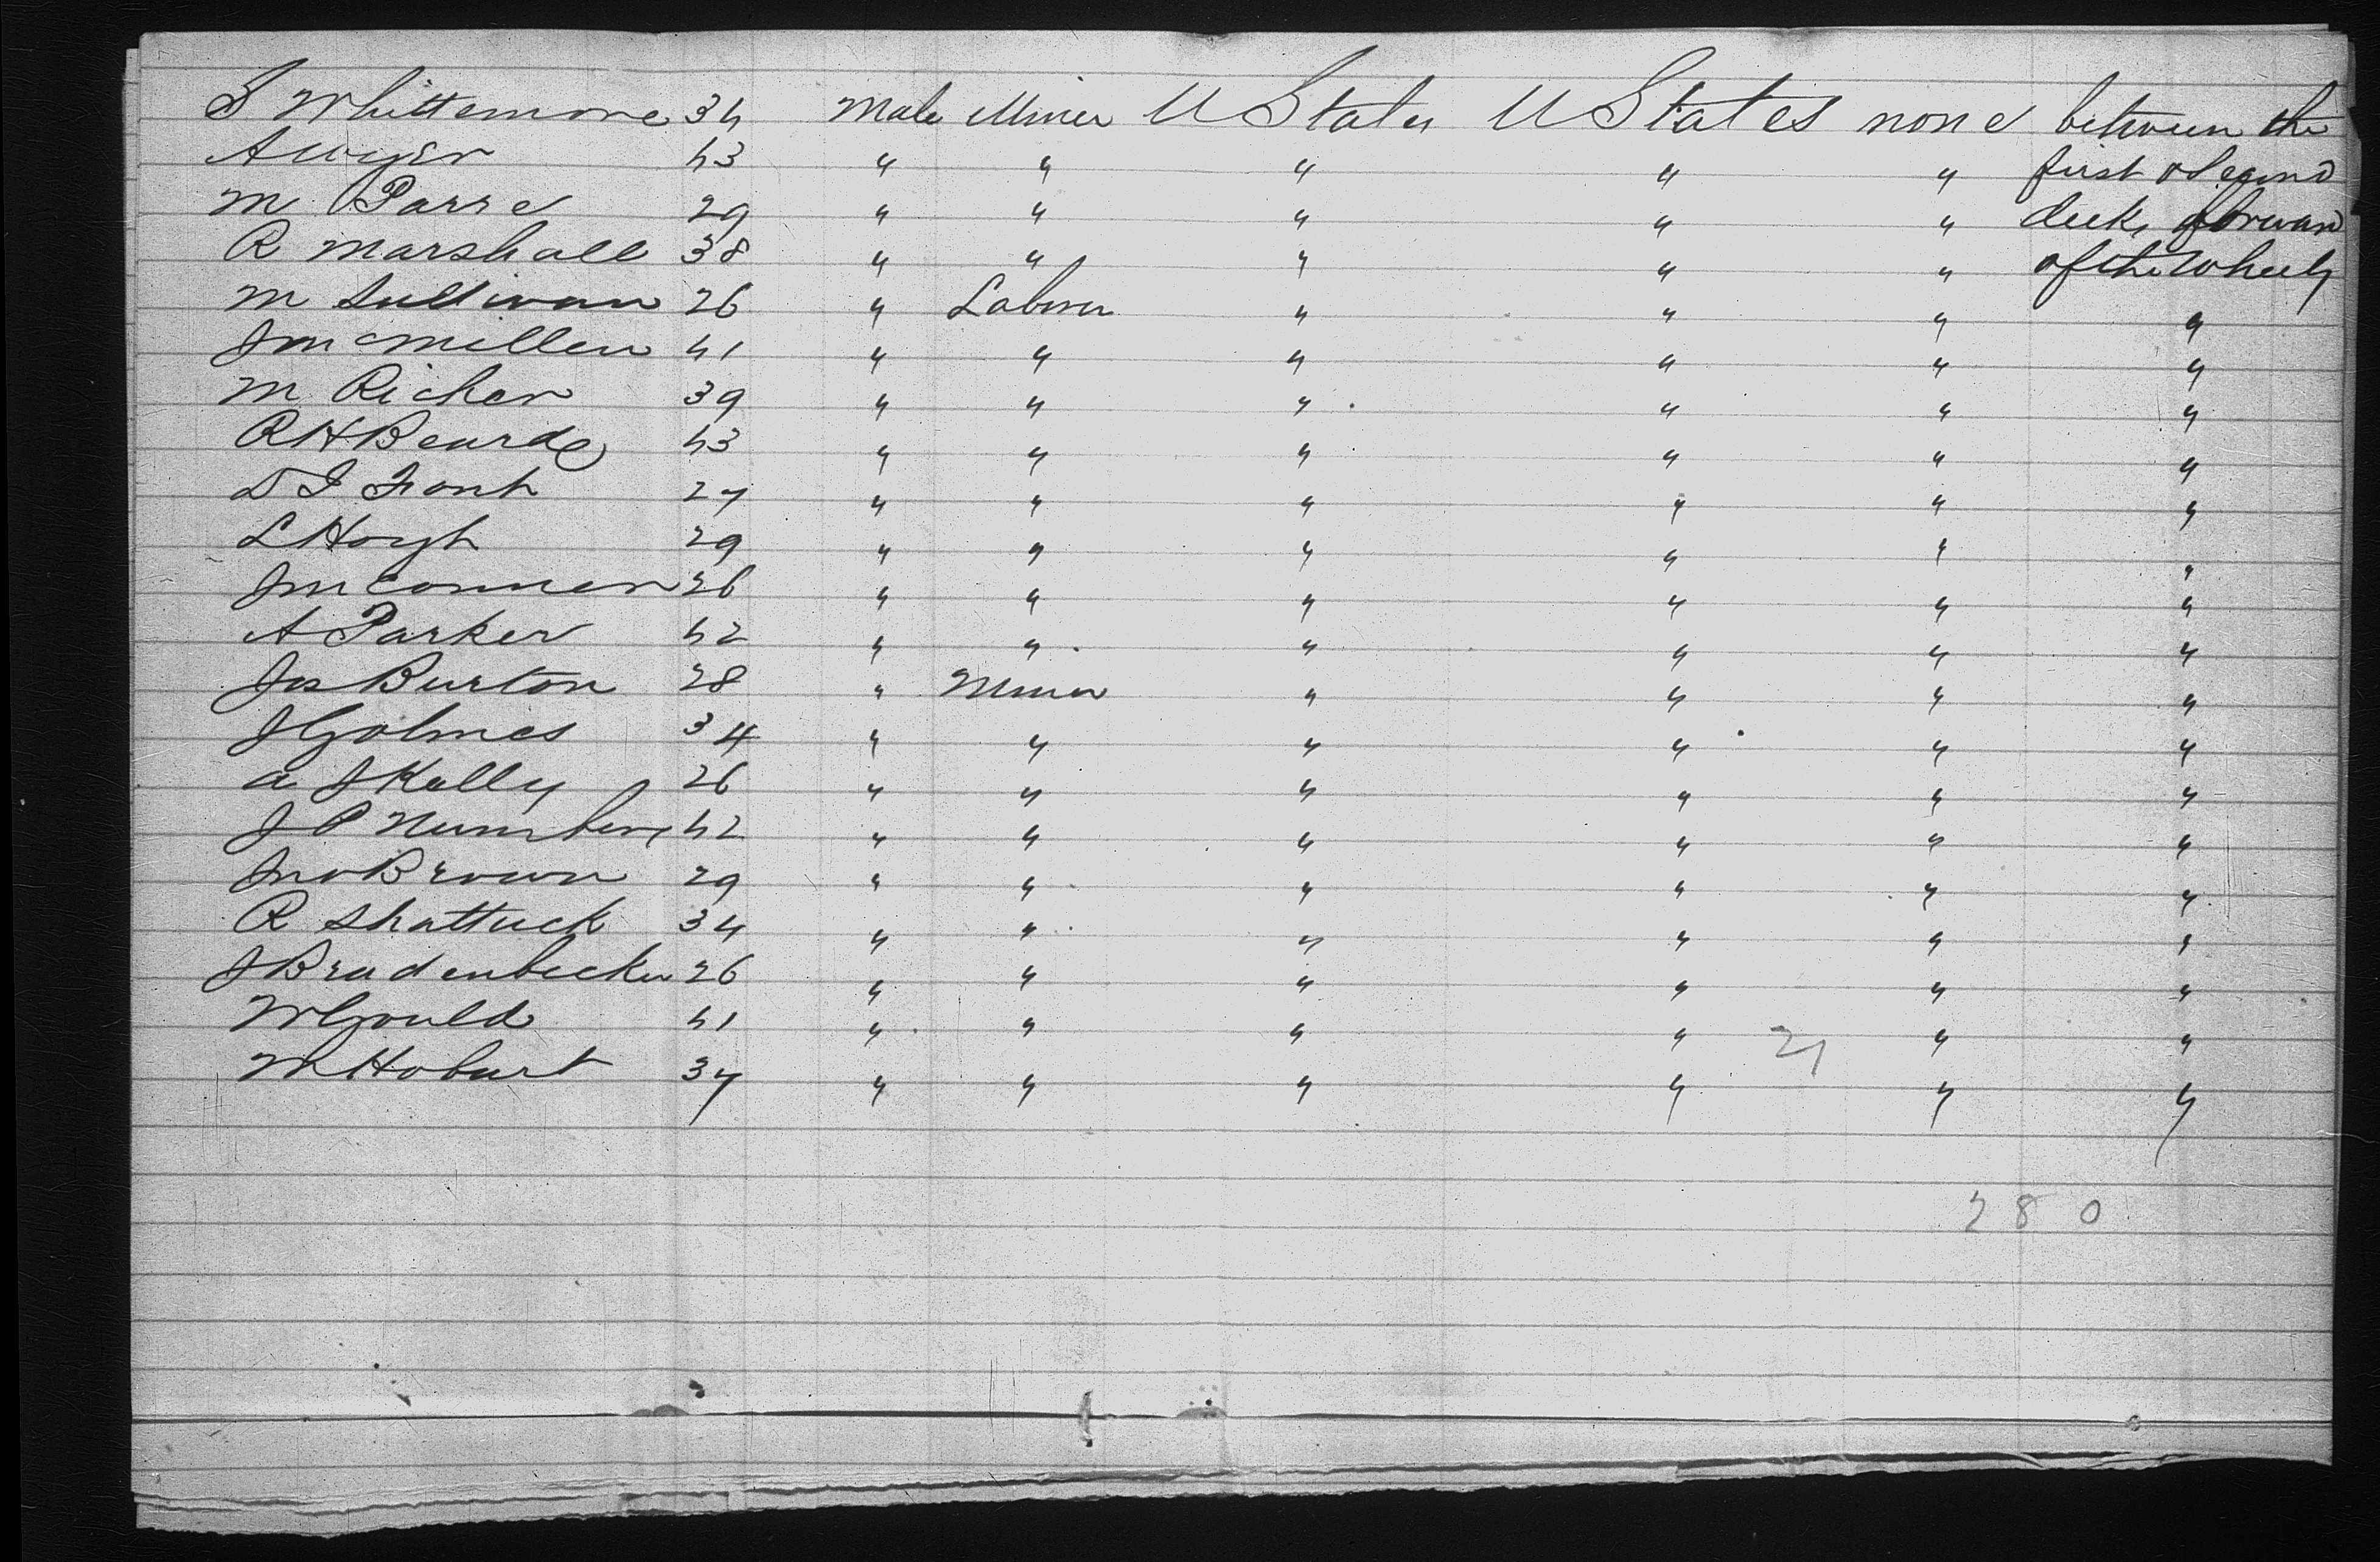 S Whittemore 34 Male Miner U States U States none between the
A Wyer 43 " " " " " first & Second
M Parre 29 " " " " " deck, forward
R Marshall 38 " " " " " of the Wheels
M Sullivan 26 " Laborer " " " "
J McMillen 41 " " " " " "
M Richer 39 " " " " " "
R H Bearde 43 " " " " " "
27 " " " " " "
L Hoyh 29 " " " " " "
J McConner 26 " " " " " "
A Parker 42 " " " " " "
Jas Burton 28 " Miner " " " "
J Golmes 34 " " " " " "
A J Kelly 26 " " " " " "
J P 42 " " " " " "
Jno Brown 29 " " " " " "
R Shattuck 34 " " " " " "
J Bradenbecker 26 " " " " " "
W Gould 41 " " " " " "
21
M Hobart 37 " " " " " "
280